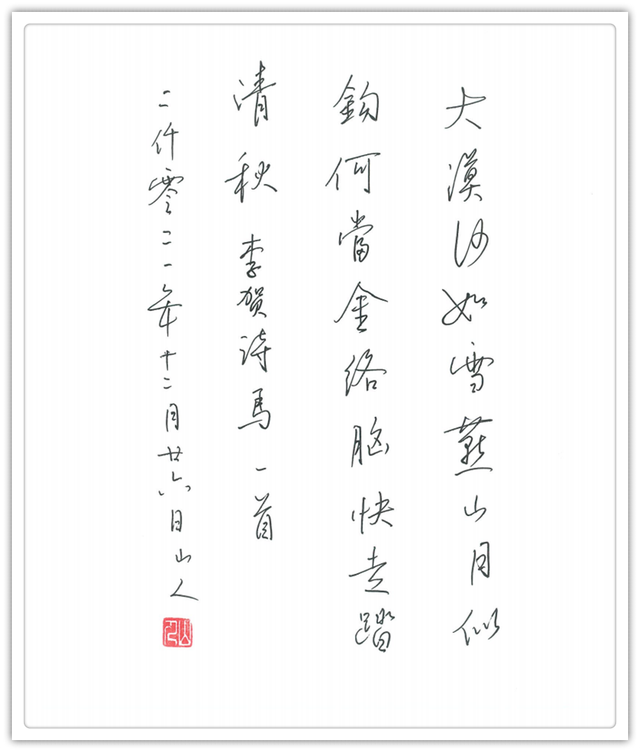 大漠沙如雪燕山月似
鈎何當金络脑快走踏
清秋 李贺诗馬一首
二仟零二一年十二月廿六日山人